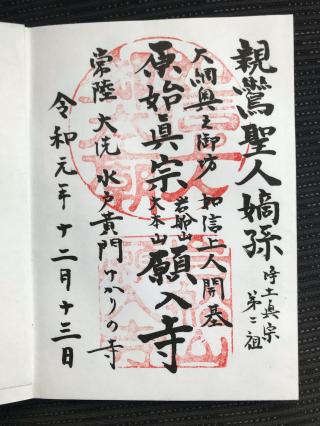 親鸞聖人嫡孫
浄土真宗
第二祖
大網奥之御坊 如信上人開基
原始眞宗
岩船山
大本山
願入寺
常陸 大洗 水戸黄門ゆかりの寺
令和元年十二月十三日